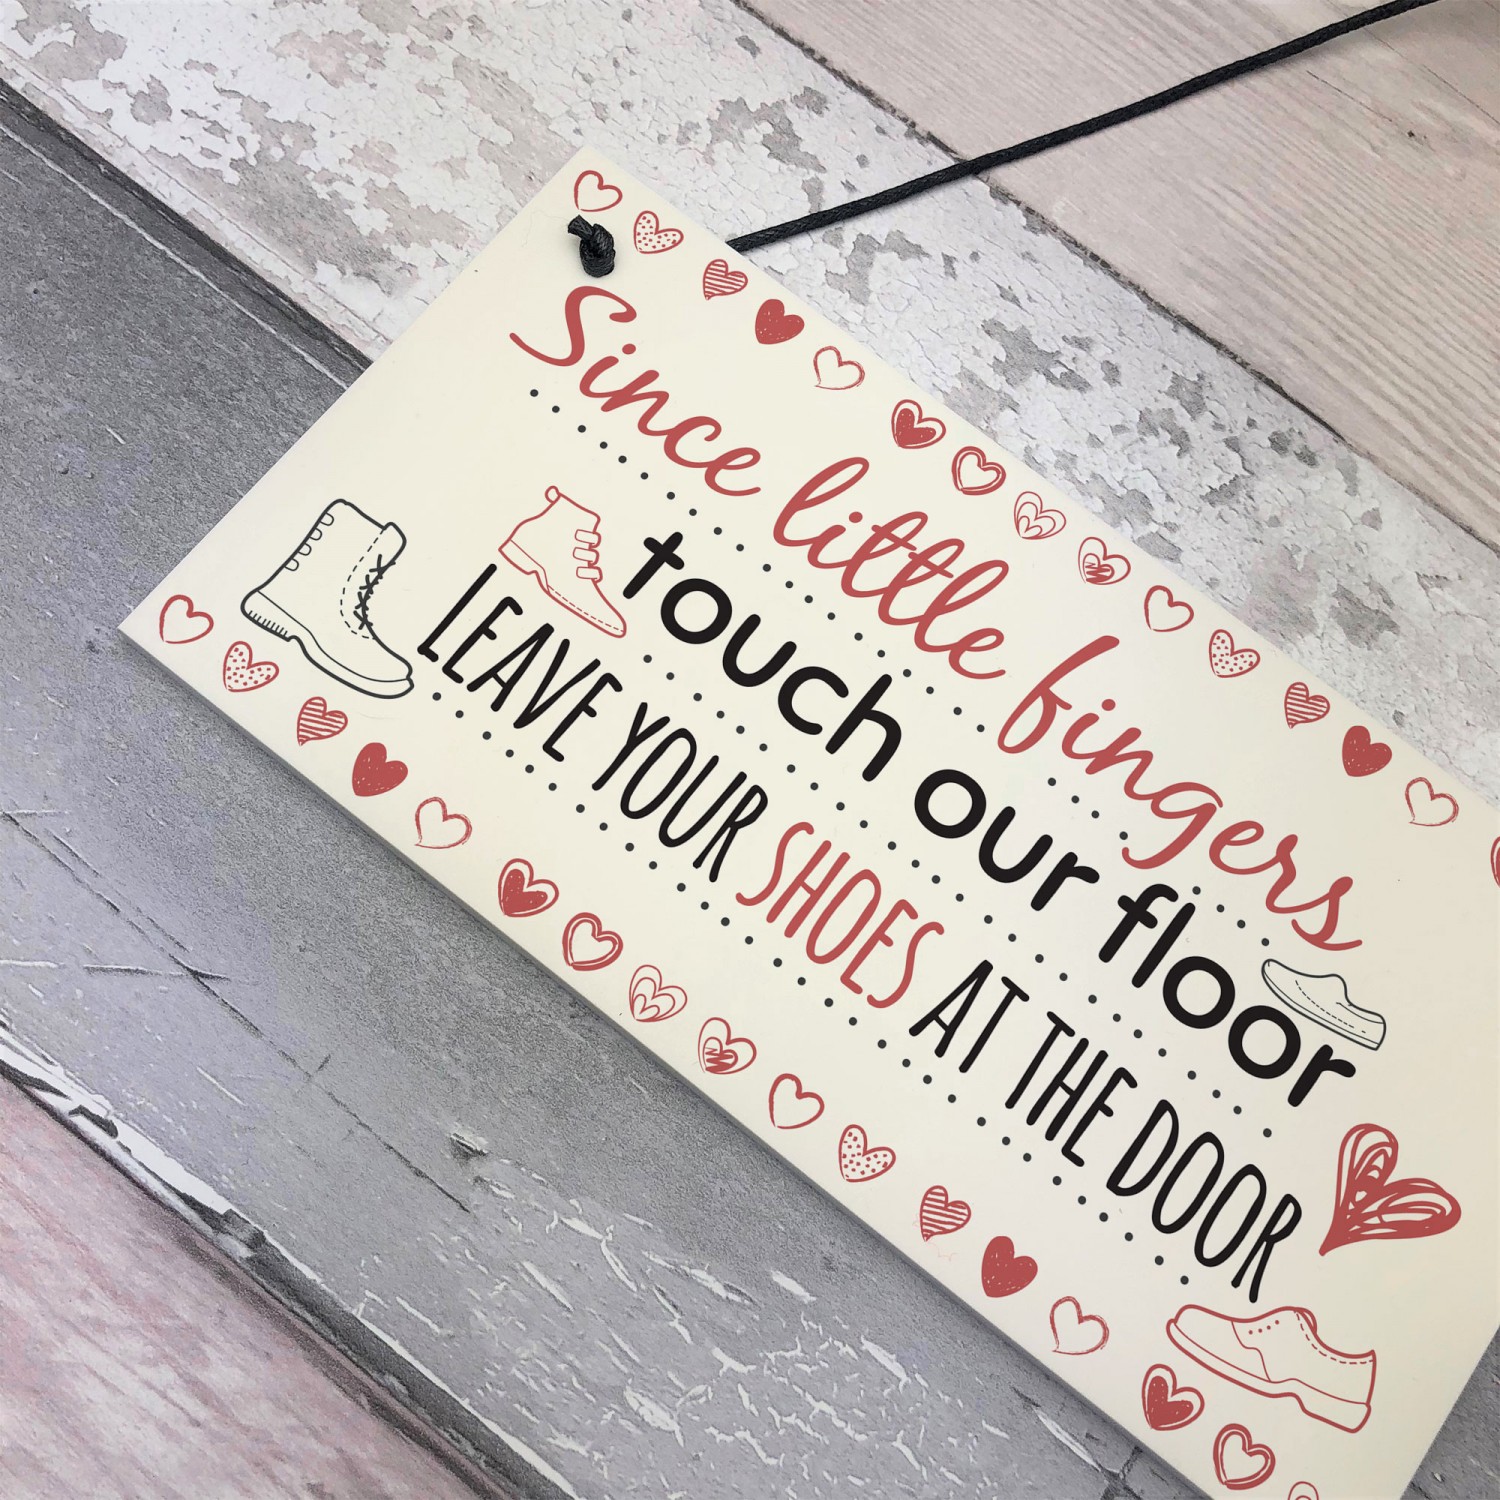 Since little fingers
touch our floor
LEAVE YOUR SHOES AT THE DOOR